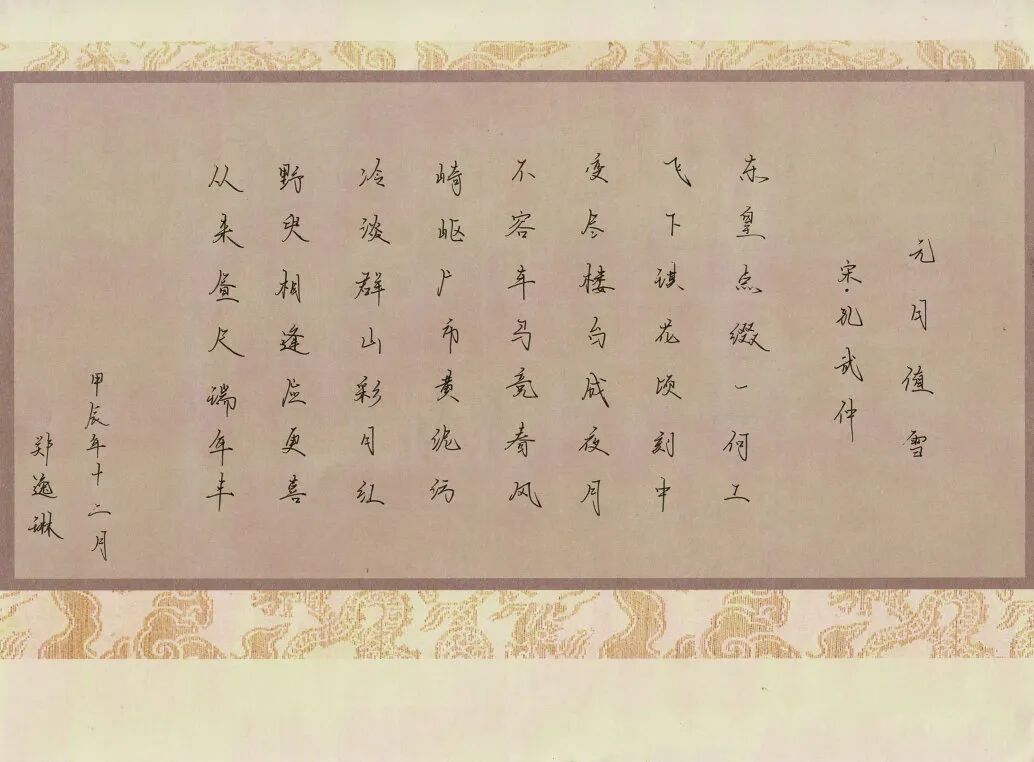 元日值雪
宋·孔武仲
东皇点缀一何工
飞下琪花顷刻中
变尽楼台成夜月
不容车马竞春风
崎岖广市黄泥污
冷淡群山彩日红
野叟相逢应更喜
从来盈尺瑞年丰
甲辰年十二月
郑逸琳